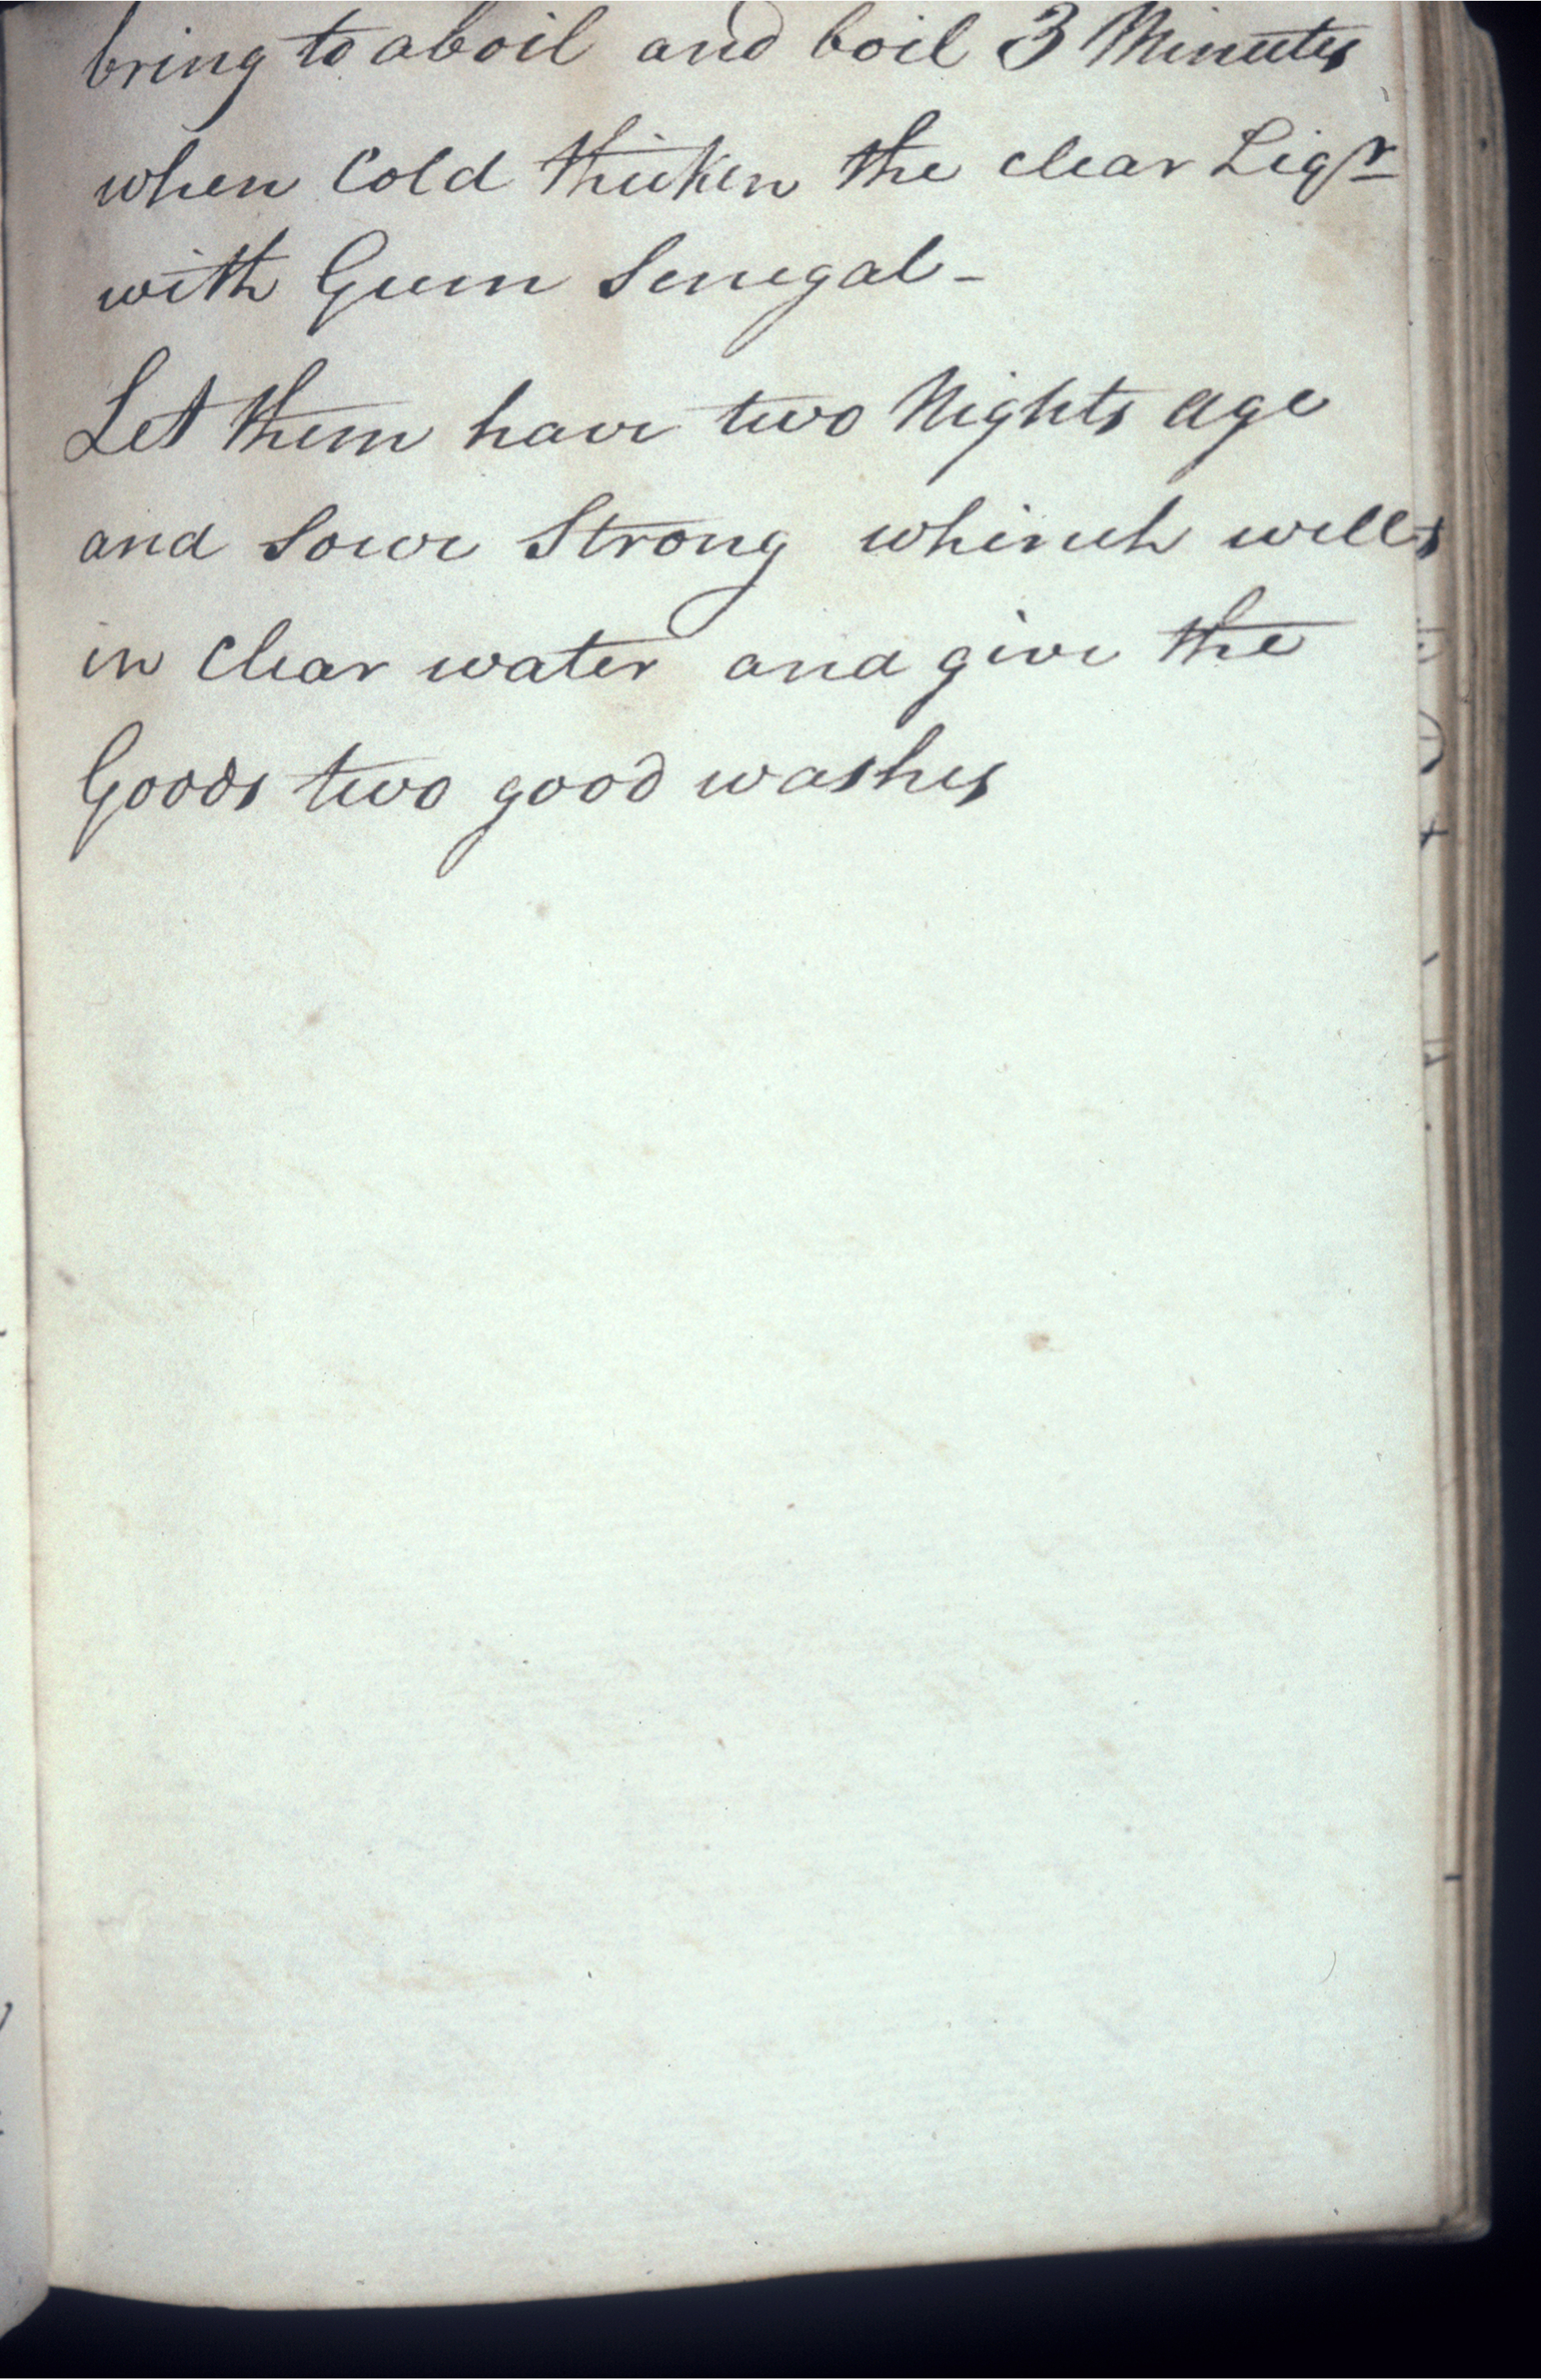 bring to aboil and boil 3 Minutes
when Cold thicken the clear Liqr
with Gum Senegal -
Let them have two Nights age
and Sowr Strong whinch well
in Clear water and give the
Goods two good washes